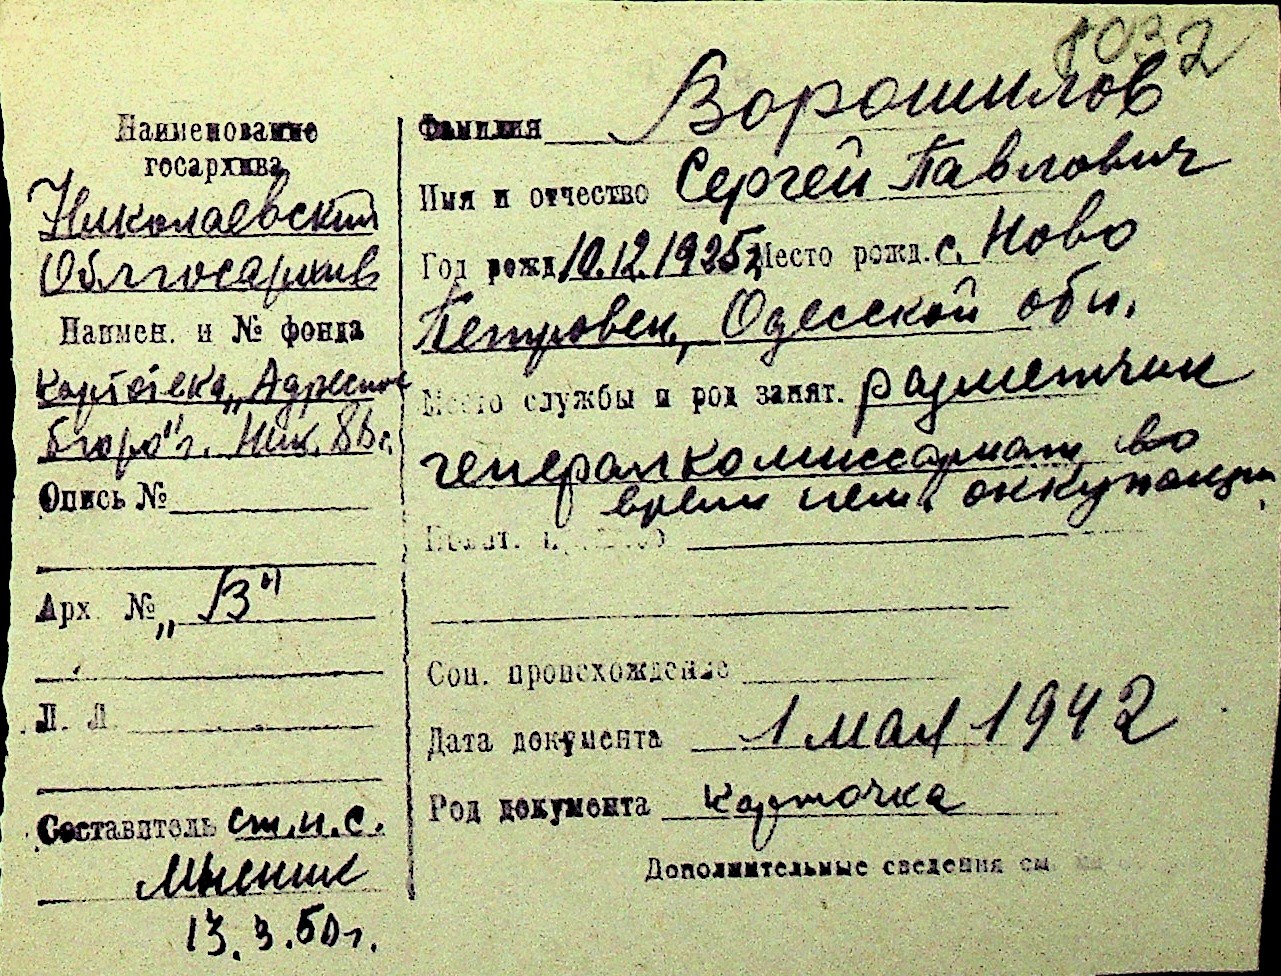 8032
Наименование
госархива
Николаевский
Облгосархив
Наимен. и № фонда
картотека „Адресное
бюро" г. Ник.
Опись №
Арх. № „В"
Л. Л.
Составитель ст.н.с.
13.3.50г.
Фамилия Ворошилов
Имя и отчество Сергей Павлович
Год рожд. 10.12.1925г. Место рожд. с. Ново
Петровск, Одесской обл.
Место службы и род занят. разметчик
генералкомиссариат во
время нем. оккупации
Соц. происхождение
Дата документа 1 мая 1942
Род документа карточка
Дополнительные сведения см.